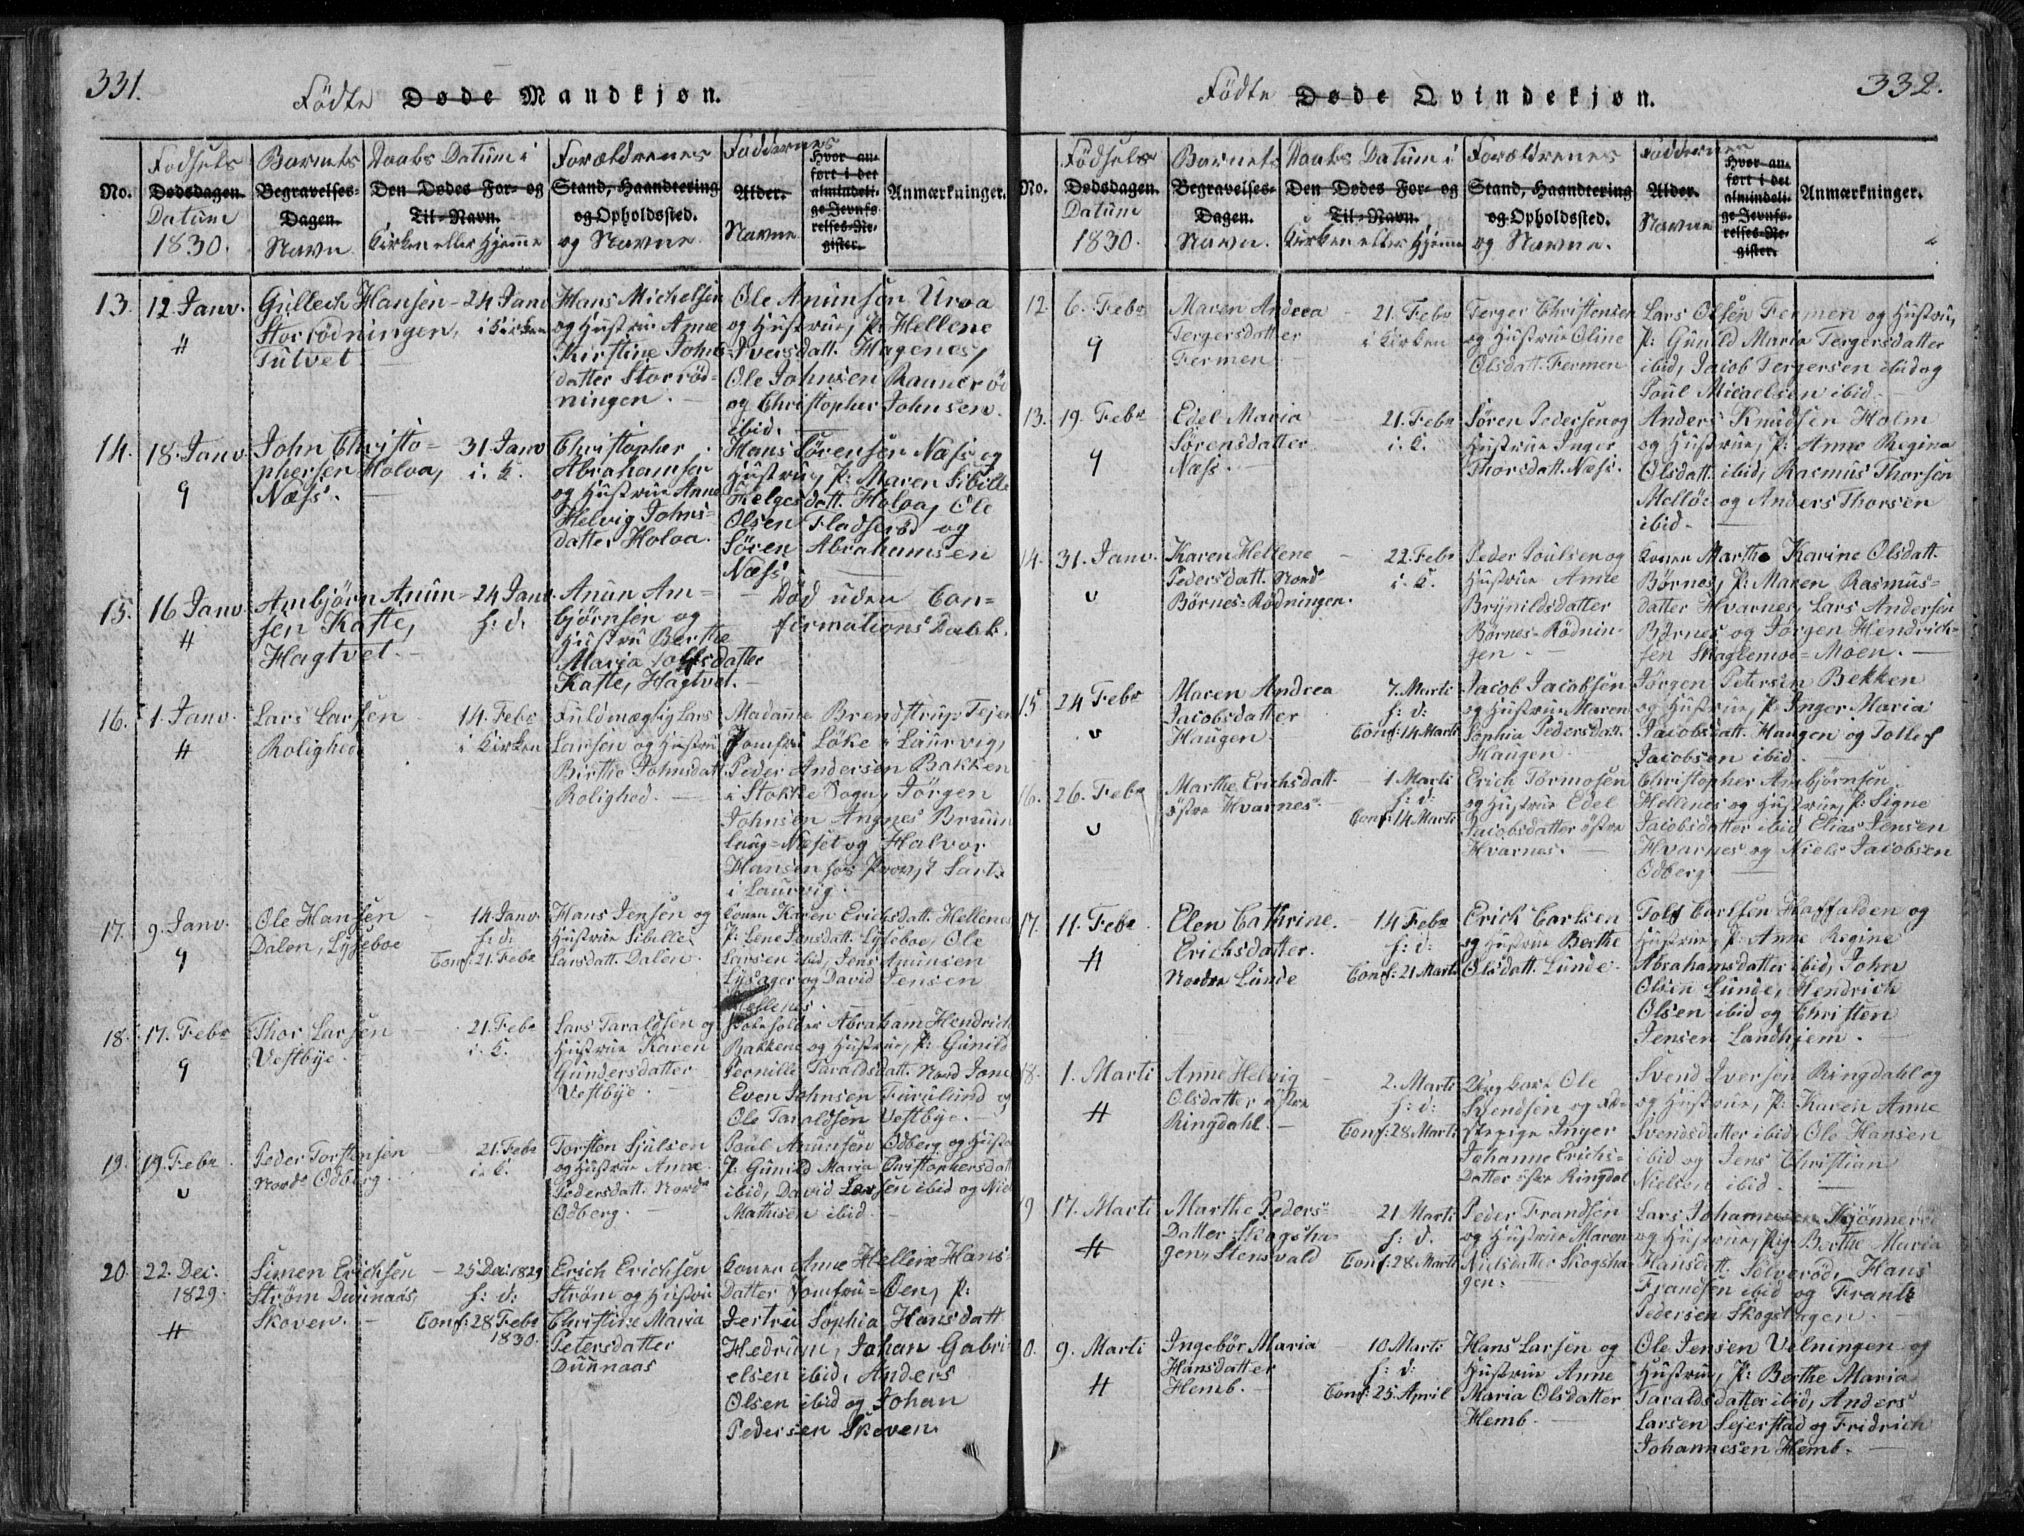 331.
Födte Døde Mandkjøn.
No.
Fødsels Dødsdagen. Datum 1830.
Barnets Begravelses-Dagen. Navn
Daabs Datum i Den Dødes For- og Til-Navn. Kirken eller Hjemme
Forældrenes Stand, Haandtering og Opholdssted. og Navne
Faddernes Alder. Navne
Hvor anført i det almindelige Jevnførelses-Register.
Anmærkninger.
13. 12 Janv. H
Gullech Hansen
Storrødningen,
Tutvet.
24 Janv
i Kirken
Hans Michelsen
og Hustrue Anne
Kirstine Johns-
datter Storrød-
ningen.
Ole Anunsen Uroa
og Hustrue, P: Hellene
Iversdatt. Hagenes,
Ole Johnsen Rannerød
og Christopher Johnsen
ibid.
14. 18. Janv 9
John Christo-
phersen Holva,
Næss.
31 Janv
i. K.
Christopher
Abrahamsen
og Hustrue Anne
Helvig Johns-
datter Holva.
Hans Sørensen Næss og
Hustrue, P: Maren Sibille
Helgesdatt. Holva, Ole
Olsen Fladserød og
Søren Abrahamsen
Næss.
15. 16 Janv H
Ambjørn Anun-
sen Kaste,
Hagtvet.
24 Janv
h: d:
Anun Am-
bjørnsen og
Hustru Berthe
Maria datter
Kaste, Hagtvet.
Død uden Con-
firmations Daab.
16. 1. Janv. H
Lars Larsen
Rolighed
14. Febr
i Kirken
Fuldmægtig Lars
Larsen og Hustru
Birthe Johnsdatt
Rolighed.
Madame Brendstrup Fejen
Jomfru Løke i Laurvig,
Peder Andersen Bakken
i Stokke Sogn, Jörgen
Johnsen Angnes Bruun
laug-Næset og Halvor
Hansen hos Provst Sart.
i Laurvig.
17. 9. Janv. 9
Ole Hansen
Dalen, Lÿseboe
14. Janv
h: d:
Conf: 21. Febr
Hans Jensen og
Hustrue Sibille
Larsdatt. Dalen.
Konen Karen Erichsdatt. Hellenes
P: Lene Jensdatt. Lÿseboe, Ole
Larsen ibid, Jens Anunsen
Lysager og David Jensen
Hellenes.
18. 17. Febr 9
Thor Larsen
Vestbÿe.
21. Febr
i. K.
Lars Taraldsen og
Hustrue Karen
Gundersdatter
Vestbÿe.
Abraham Hendrich
Bakkene og Hustrue, P: Gunild
Pernille Taraldsdatt. Nord
Even Johnsen Furulund og
Ole Taraldsen Vestbÿe.
19. 19. Febr v
Peder Torstensen
Nordr Odberg.
21. Febr
i. K.
Torsten Sjulsen
og Hustrue Anne
Pedersdatt. Nordr
Odberg.
Poul Anunsen Odberg og Hustr
P: Gunild Maria Christophersdatt
ibid, David Larsen ibid og Niel
Mathisen ibid.
20. 22. Dec. 1829. H
Simen Erichsen
Strøm Dunnaas,
Skoven.
25 Dec 1829
h: d:
Conf: 28 Febr
1830.
Erich Erichsen
Strøm og Hustru
Christine Maria
Petersdatter
Dunnaas
Konen Anne Hellene Hans
Datter Jomfru-Øen, P:
Jertru Sophia Hansdatt
Hedrum, Johan Gabri
elsen ibid, Anders
Olsen ibid og Johan
Pedersen Skoven.
332.
Födte Døde Qvindekjøn.
No.
Fødsels Dødsdagen. Datum 1830.
Barnets Begravelses-Dagen. Navn.
Daabs Datum i Den Dødes For- og Til-Navn. Kirken eller Hjemme
Forældrenes Stand, Haandtering og Opholdssted. og Navne.
Faddernes Alder. Navne
Hvor anført i det almindelige Jevnførelses-Register.
Anmærkninger.
12. 6. Febr 9
Maren Andrea
Tergersdatter
Fermen.
21. Febr
i Kirken
Terger Christensen
og Hustrue Oline
Olsdatt. Fermen
Lars Olsen Fermen og Hustru,
P: Gunild Maria Tergersdatter
ibid, Jacob Tergersen ibid og
Poul Micaelsen ibid.
13. 19. Febr 9
Edel Maria
Sørensdatter
Næss.
21. Febr
i. K.
Søren Pedersen og
Hustrue Inger
Thorsdatt. Næss.
Anders Knudsen Holm
og Hustrue, P: Anne Regine
Olsdatt. ibid, Rasmus Thorsen
Melløe og Anders Thorsen
ibid.
14. 31. Janv. v
Karen Hellene
Pedersdatt. Nordr
Børnes-Rødningen.
22. Febr
i. K.
Peder Poulsen og
Hustrue Anne
Brynildsdatter
Børnes-Rødnin-
gen.
Konen Marthe Karine Olsdatt.
Børnes, P: Maren Rasmus-
datter Hvarnes, Lars Andersen
Børnes og Jørgen Hendrich-
sen Skaglemoe-Moen.
15. 24 Febr v
Maren Andrea
Jacobsdatter
Haugen
7. Marti
h: d:
Conf: 14 Marti
Jacob Jacobsen
og Hustrue Maren
Sophia Pedersdatt.
Haugen
Jørgen Petersen Bekken
og Hustrue, P: Inger Maria
Jacobsdatt. Haugen og Tollef
Jacobsen ibid.
16. 26. Febr v
Marthe Erichsdatt.
østre Hvarnes.
1. Marti
h: d:
Conf: 14 Marti
Erich Tormosen
og Hustrue Edel
Jacobsdatter østre
Hvarnes.
Christopher Ambjørnsen
Hellenes og Hustrue, P: Signe
Jacobsdatter ibid, Elias Jensen
Hvarnes og Niels Jacobsen
Odberg.
17. 11. Febr H
Elen Cathrine
Erichsdatter.
Nordre Lunde
14. Febr
h: d:
Conf: 21 Marti
Erick Carlsen
og Hustrue Berthe
Olsdatt. Lunde.
Tolf Carlsen Haffalden og
Hustrue, P: Anne Regine
Abrahamsdatter ibid, John
Olsen Lunde, Hendrich
Olsen ibid og Christen
Jensen Landhiem.
18. 1. Marti H
Anne Helvig
Olsdatter østre
Ringdahl.
2. Marti
h: d:
Conf: 28 Marti
Ungkarl Ole
Svendsen og
pige Inger
Johanne Erichs-
Datter østre Ringdal
Svend Iversen Ringdahl og
og Hustrue, P: Karen Anne
Svendsdatter ibid, Ole Hansen
ibid og Jens Christian
Nielsen ibid.
19 17. Marti H
Marthe Peders-
Datter Skogsha-
gen, Stensvald
21 Marti
h: d:
Conf: 28 Marti
Peder Frandsen
og Hustrue Maren
Nielsdatter Skogsha-
gen.
Lars Johannesen Kjønnerød
og Hustrue, Pig. Berthe Maria
Hansdatt. Sølverød, Hans
Frandsen ibid og Frants
Pedersen Skogshagen.
20. 9. Marti H
Ingebør Maria
Hansdatter
Hemb.
10 Marti
h: d:
Conf: 25 April
Hans Larsen og
Hustrue Anne
Maria Olsdatter
Hemb.
Ole Jensen Velningen og
Hustrue, P: Berthe Maria
Taraldsdatter ibid, Anders
Larsen Sejerstad og Fridrich
Johannesen Hemb.